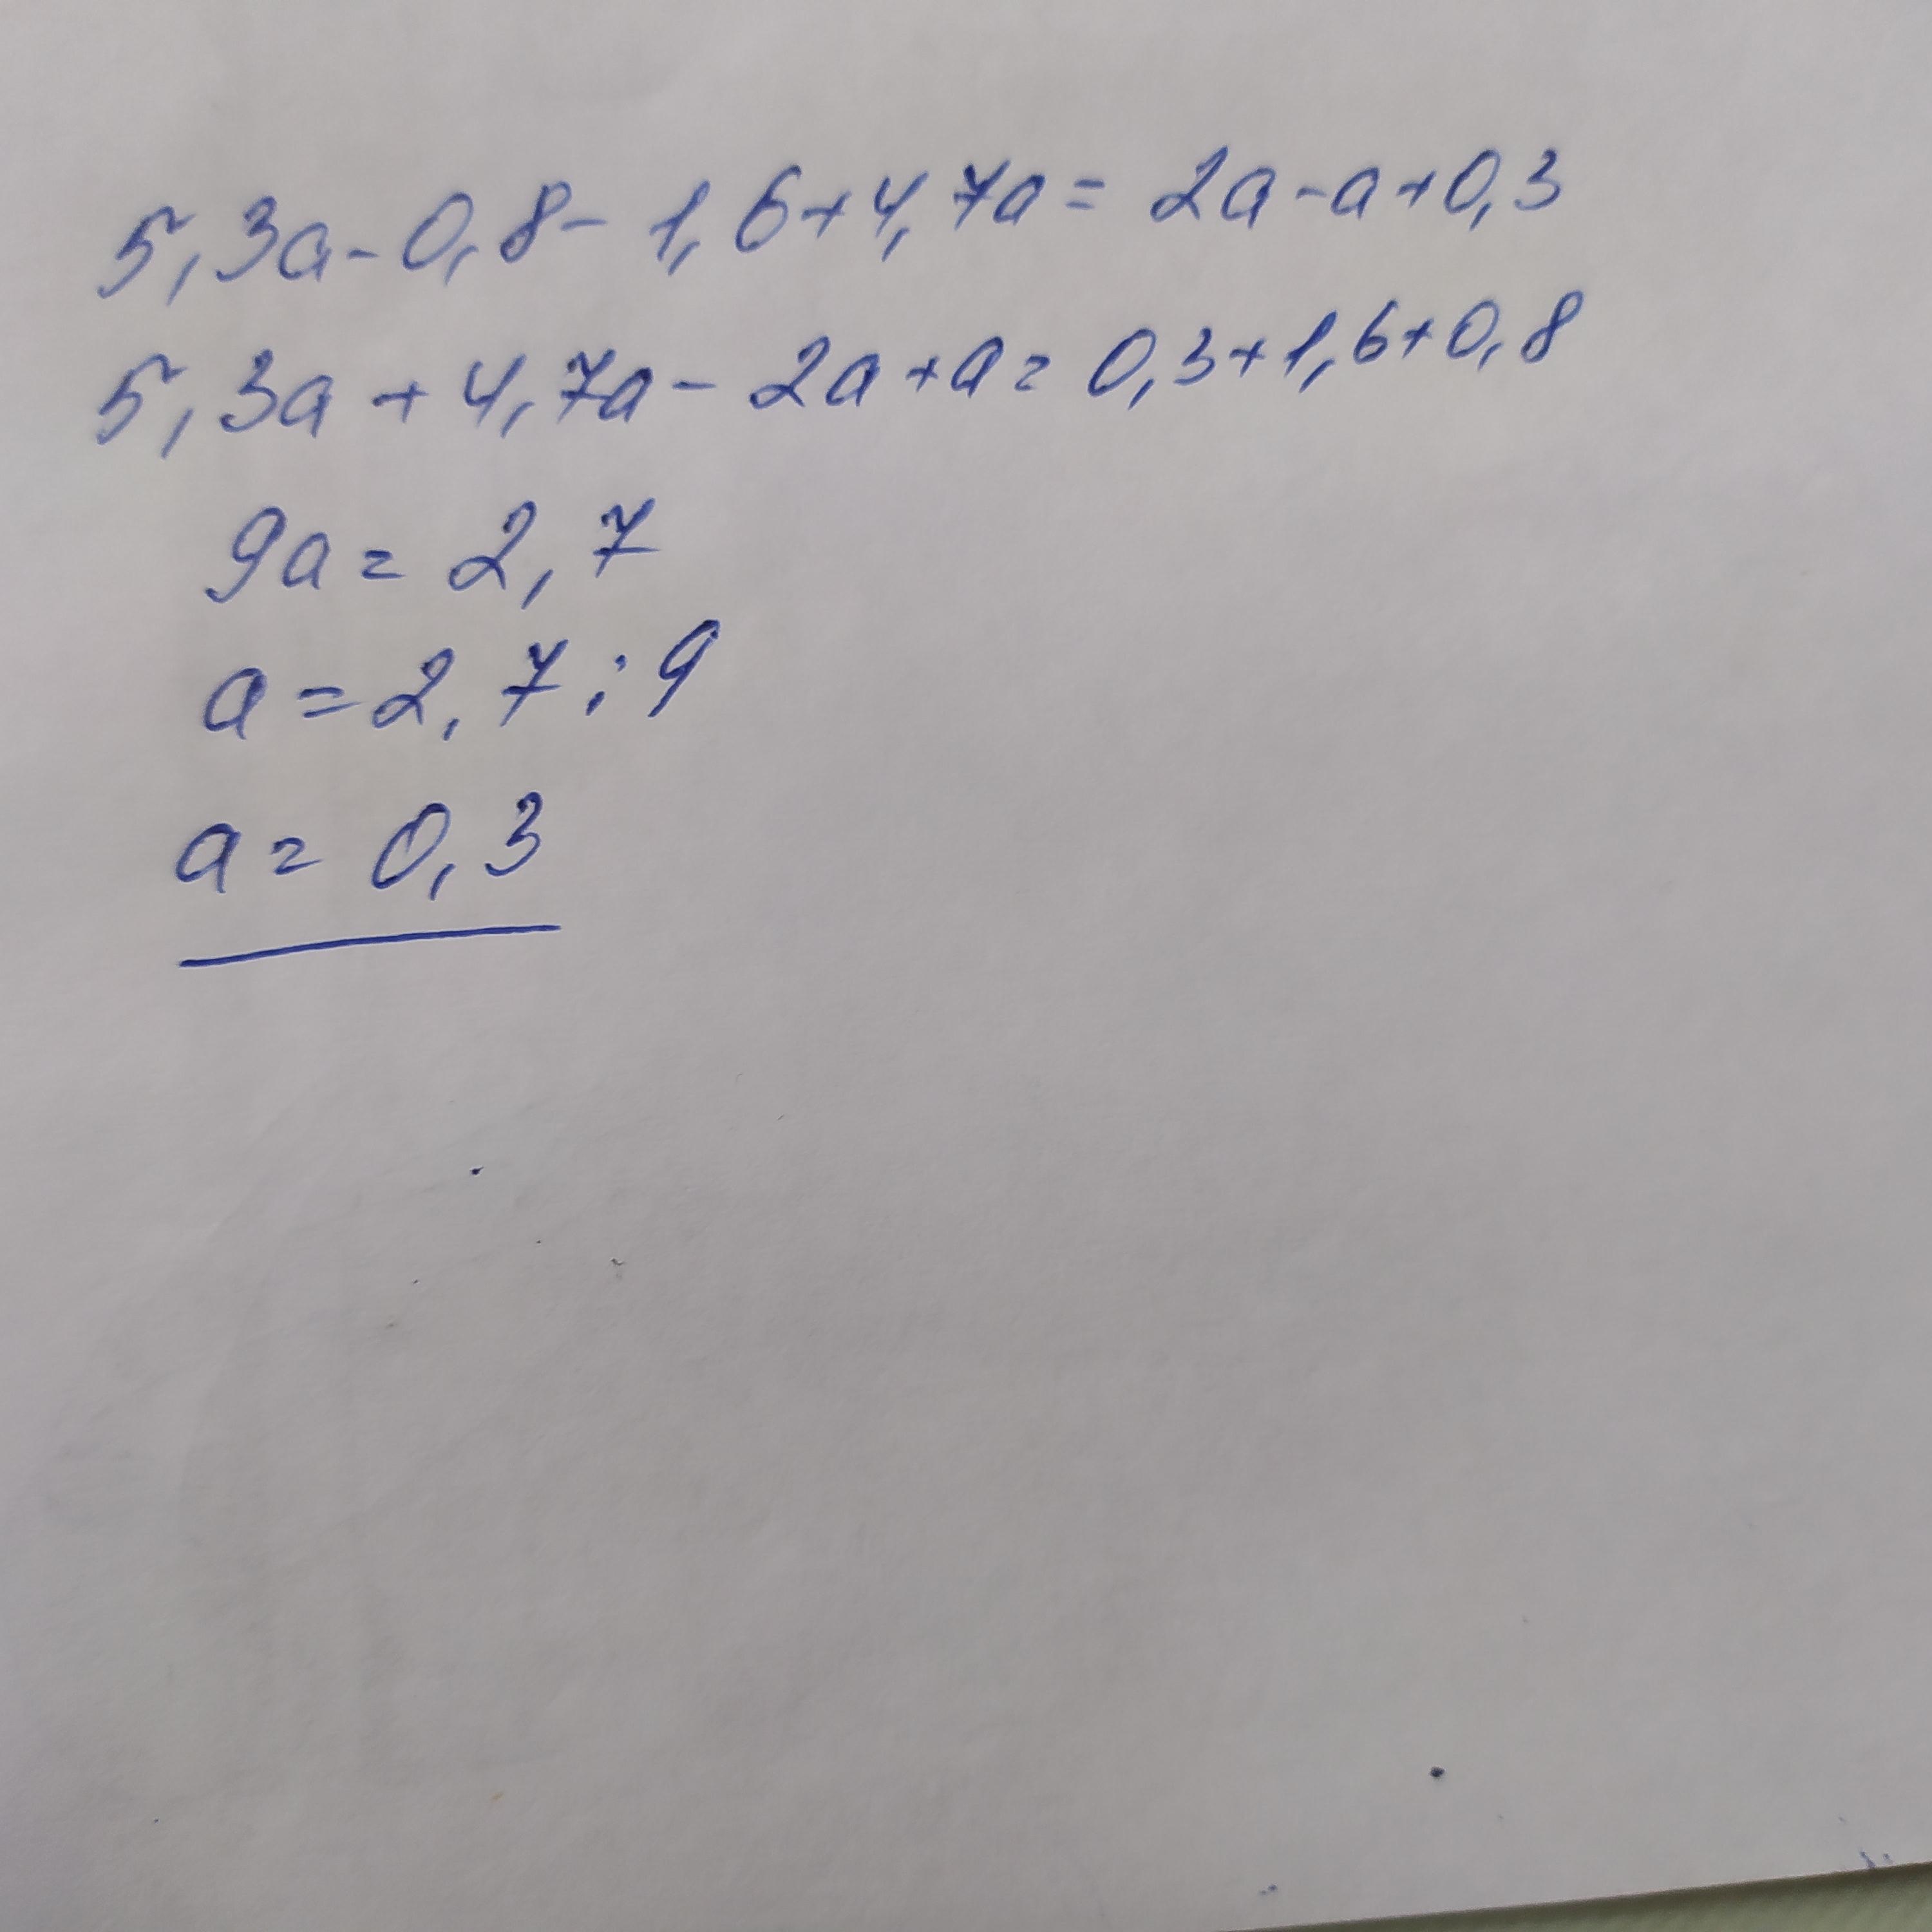 5,3a-0,8-1,6+4,7a=2a-a+0,3
5,3a+4,7a-2a+a=0,3+1,6+0,8
9a=2,7
a=2,7:9
a=0,3